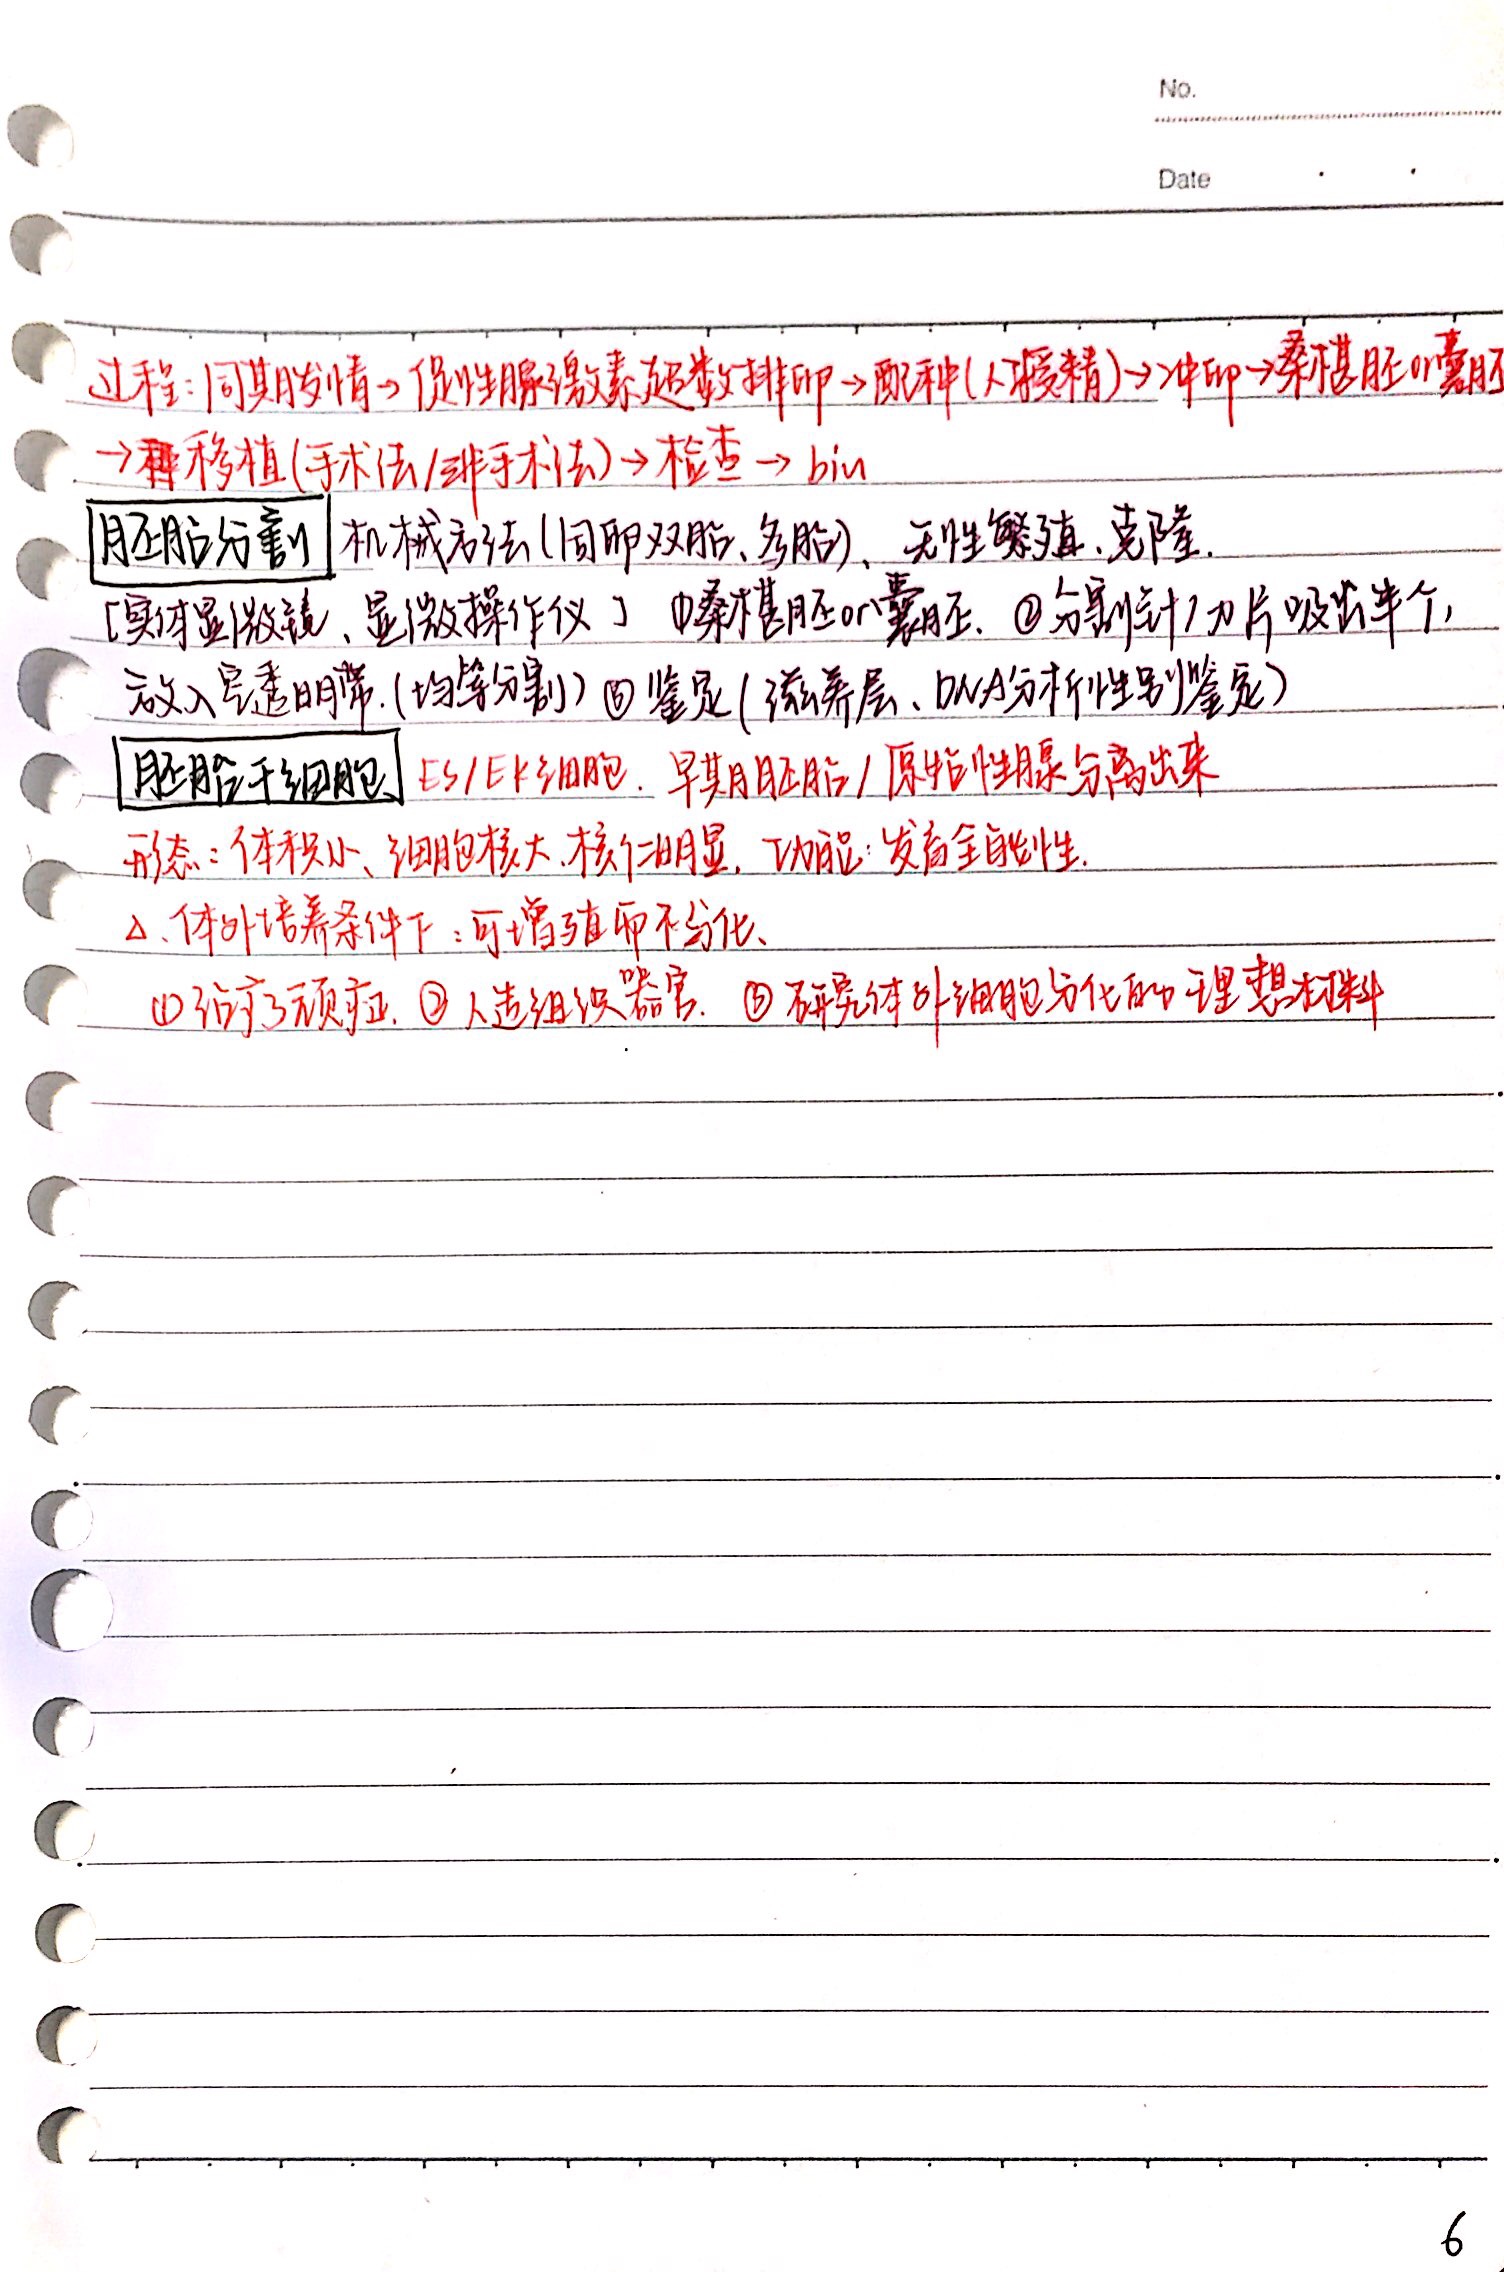 No.
Date
过程:同期发情→促性腺激素超数排卵→配种(人工授精)→冲卵→桑椹胚or囊胚
→移植(手术法/非手术法)→检查→biu
胚胎分割 机械方法(同卵双胎、多胎)、无性繁殖、克隆.
[实体显微镜、显微操作仪] ①桑椹胚or囊胚. ②分割针/刀片吸出半个,
放入空透明带.(均等分割)③鉴定(滋养层、DNA分析性别鉴定)
胚胎干细胞 ES/EK细胞. 早期胚胎/原始性腺分离出来
形态:体积小、细胞核大、核仁明显. 功能:发育全能性.
△、体外培养条件下:可增殖而不分化、
①治疗顽症. ②人造组织器官. ③研究体外细胞分化的理想材料
6